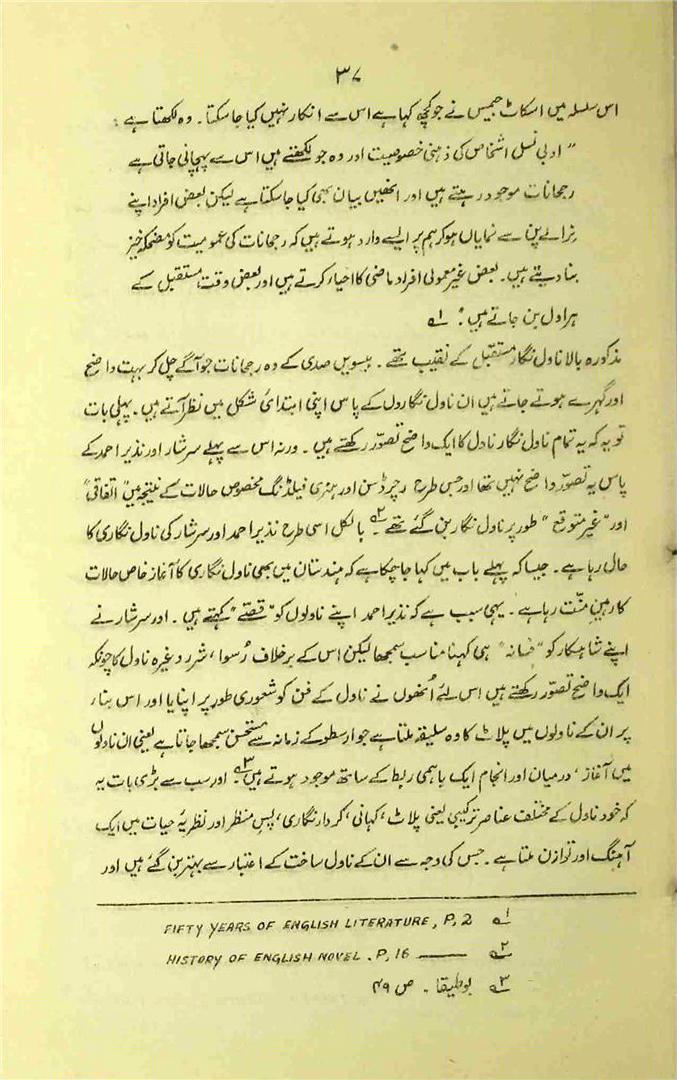 ۳۷
اس سلسلہ میں اسکاٹ جیمس نے جو کچھ کہا ہے اس سے انکار نہیں کیا جا سکتا۔ وہ لکھتا ہے:
"ادبی نسل اشخاص کی ذہنی خصوصیت اور وہ جو لکھتے ہیں اس سے پہچانی جاتی ہے
رجحانات موجود رہتے ہیں اور انھیں بیان بھی کیا جا سکتا ہے لیکن بعض افراد اپنے
نرالے پن سے نمایاں ہو کر ہم پر ایسے وارد ہوتے ہیں کہ رجحانات کی عمومیت کو مضحکہ خیز
بنا دیتے ہیں۔ بعض غیر معمولی افراد ماضی کا احیاء کرتے ہیں اور بعض وقت مستقبل کے
ہراول بن جاتے ہیں"۔ ؎۱
مذکورہ بالا ناول نگار مستقبل کے نقیب تھے۔ بیسویں صدی کے وہ رجحانات جو آگے چل کر بہت واضح
اور گہرے ہوتے جاتے ہیں ان ناول نگاروں کے پاس اپنی ابتدائی شکل میں نظر آتے ہیں۔ پہلی بات
تو یہ کہ یہ تمام ناول نگار ناول کا ایک واضح تصوّر رکھتے ہیں۔ ورنہ اس سے پہلے سرشار اور نذیر احمد کے
پاس یہ تصوّر واضح نہیں تھا اور جس طرح رچرڈسن اور ہنری فیلڈنگ مخصوص حالات کے نتیجہ میں "اتفاقی"
اور "غیر متوقع" طور پر ناول نگار بن گئے تھے ؎۲۔ بالکل اسی طرح نذیر احمد اور سرشار کی ناول نگاری کا
حال رہا ہے۔ جیسا کہ پہلے باب میں کہا جا چکا ہے کہ ہندستان میں بھی ناول نگاری کا آغاز خاص حالات
کا رہینِ منّت رہا ہے۔ یہی سبب ہے کہ نذیر احمد اپنے ناولوں کو "قصّے" کہتے ہیں۔ اور سرشار نے
اپنے شاہکار کو "فسانہ" ہی کہنا مناسب سمجھا لیکن اس کے برخلاف رُسوا، شرر وغیرہ ناول کا چونکہ
ایک واضح تصوّر رکھتے ہیں اس لئے اُنھوں نے ناول کے فن کو شعوری طور پر اپنایا اور اس بناء
پر ان کے ناولوں میں پلاٹ کا وہ سلیقہ ملتا ہے جو ارسطو کے زمانہ سے مستحسن سمجھا جاتا ہے یعنی ان ناولوں
میں آغاز، درمیان اور انجام ایک باہمی ربط کے ساتھ موجود ہوتے ہیں ؎۳۔ اور سب سے بڑی بات یہ
کہ خود ناول کے مختلف عناصر ترکیبی یعنی پلاٹ، کہانی، کردار نگاری، پسِ منظر اور نظریۂ حیات میں ایک
آہنگ اور توازن ملتا ہے۔ جس کی وجہ سے ان کے ناول ساخت کے اعتبار سے بہترین بن گئے ہیں اور
؎۱ FIFTY YEARS OF ENGLISH LITERATURE, P, 2
؎۲ —— HISTORY OF ENGLISH NOVEL . P, 16
؎۳ بوطیقا۔ ص ۴۹